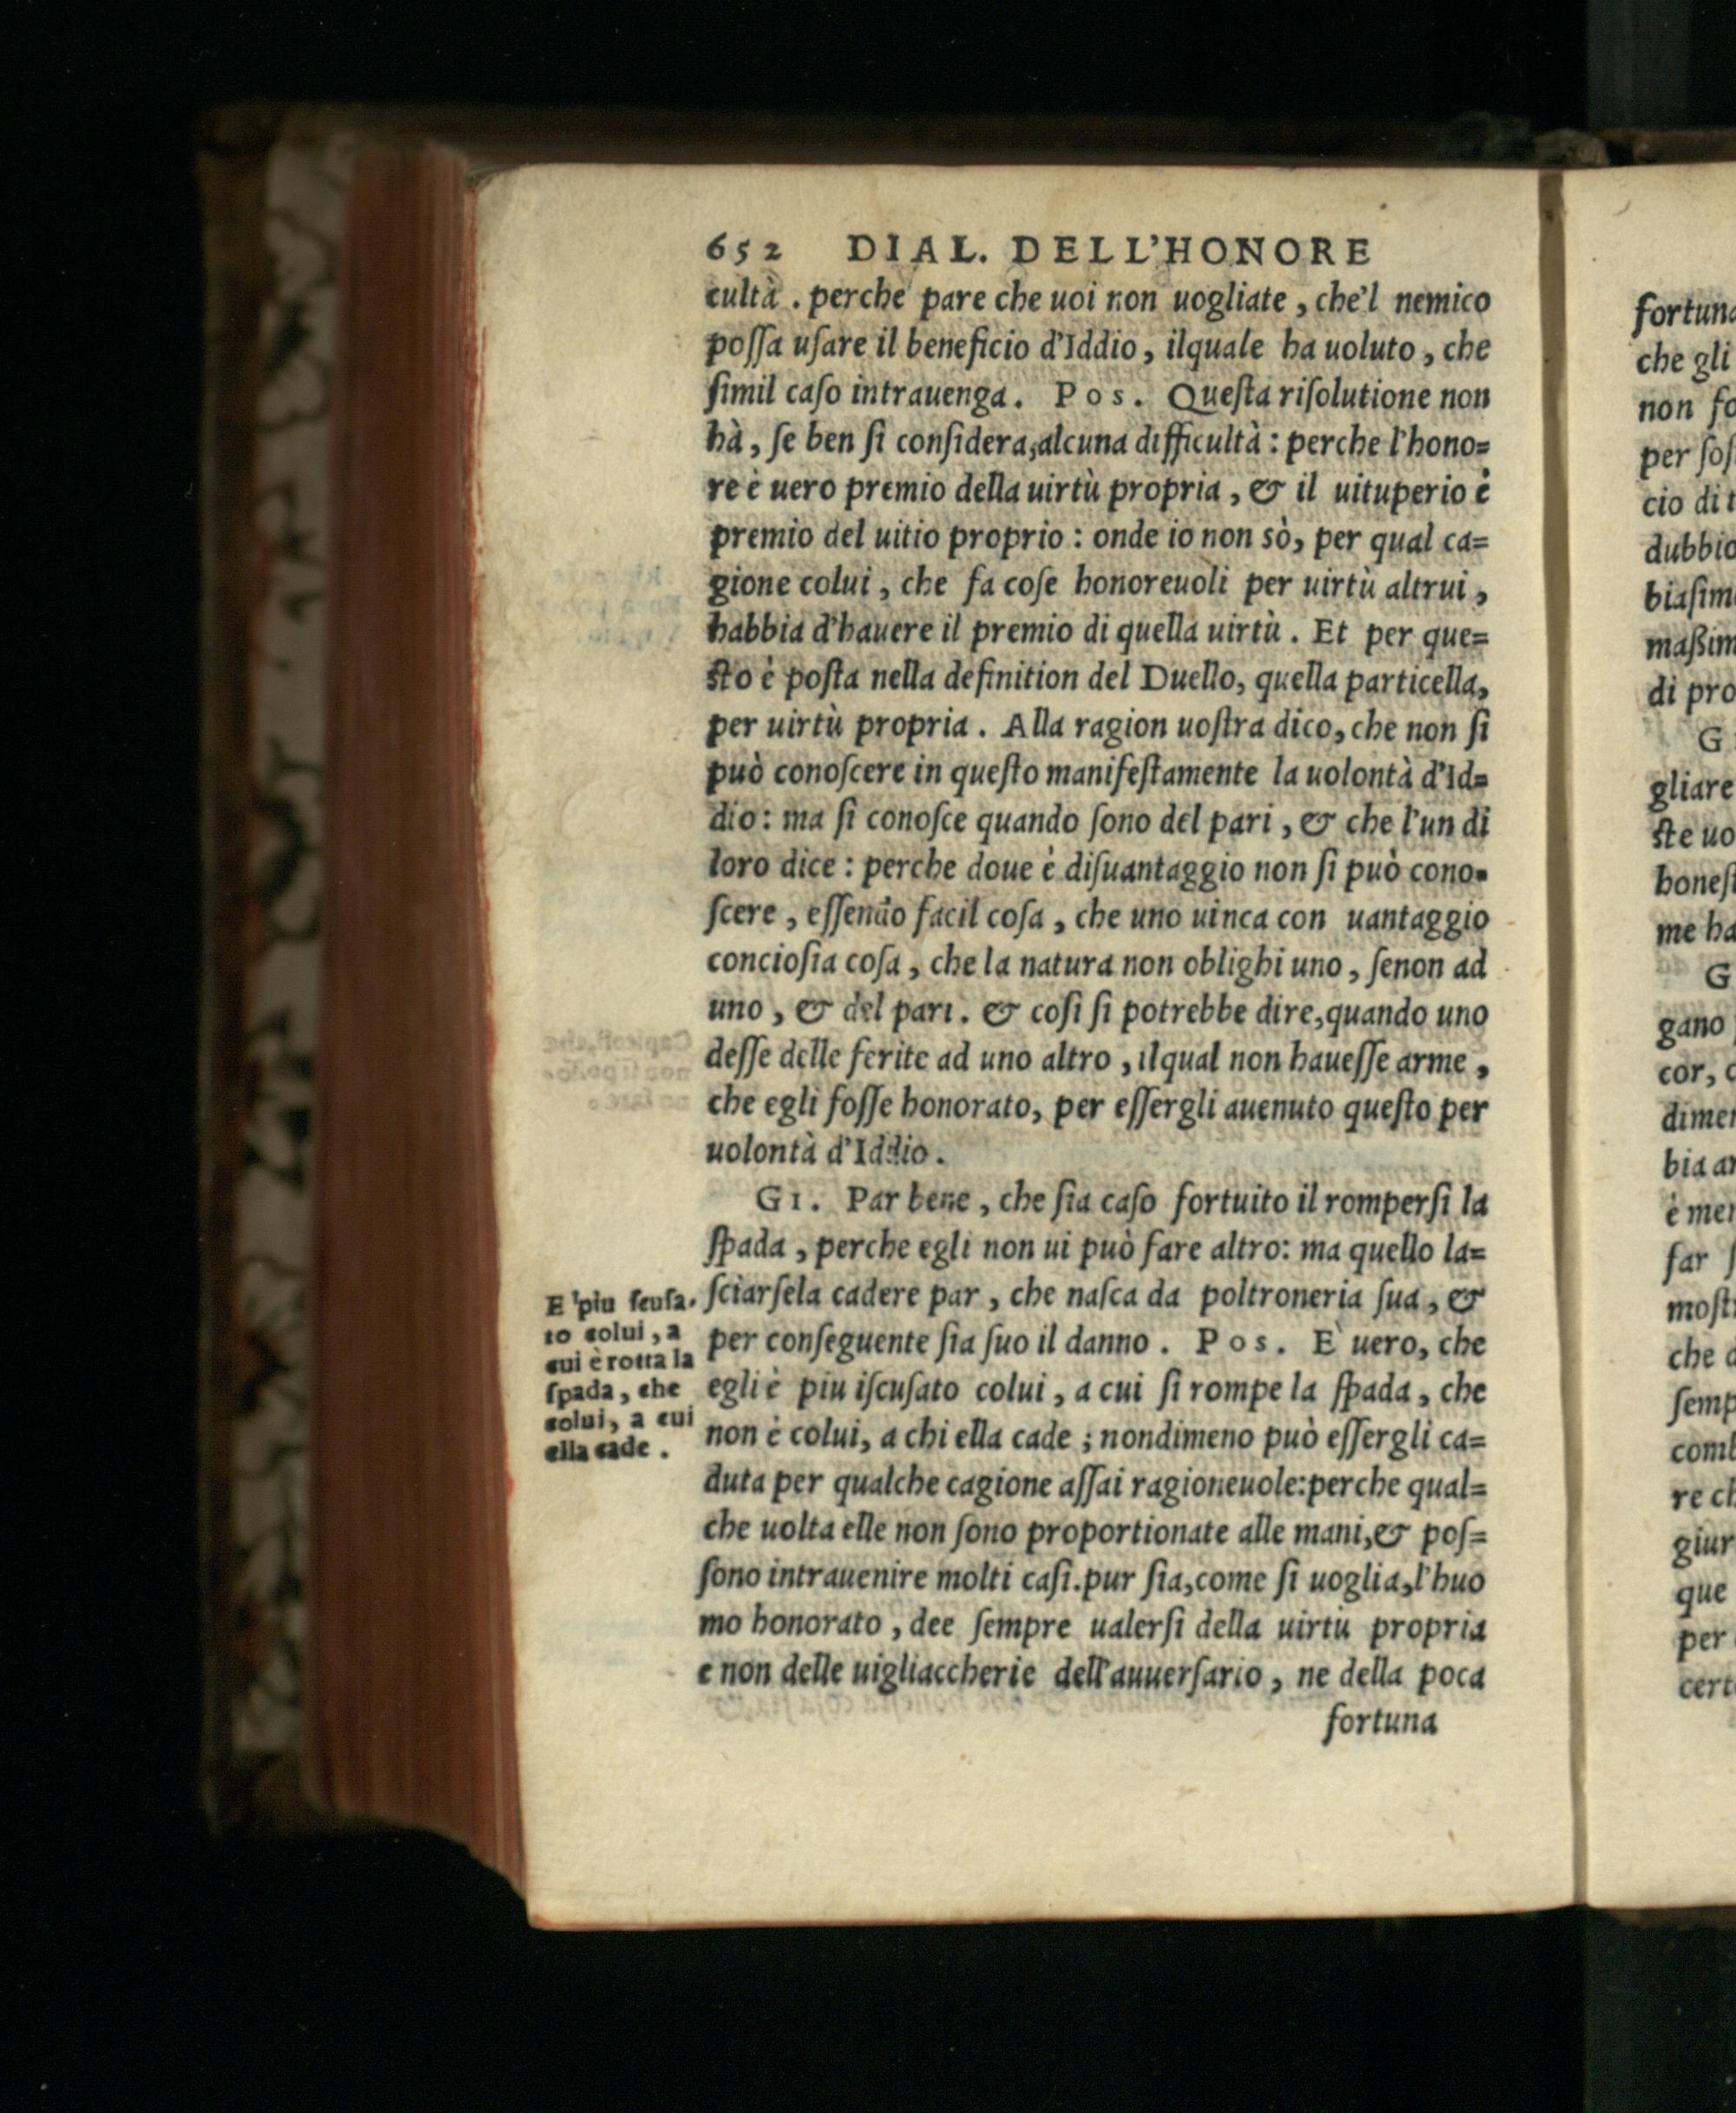 652 DIAL. DELL'HONORE
cultà . perche pare che uoi non uogliate , che'l nemico
poſſa uſare il beneficio d'Iddio , ilquale ha uoluto , che
ſimil caſo intrauenga . Pos . Queſta riſolutione non
hà , ſe ben ſi conſidera,alcuna difficultà : perche l'hono=
re è uero premio della uirtù propria , & il uituperio è
premio del uitio proprio : onde io non sò, per qual ca=
gione colui , che fa coſe honoreuoli per uirtù altrui ,
habbia d'hauere il premio di quella uirtù . Et per que=
ſto è poſta nella definition del Duello, quella particella,
per uirtù propria . Alla ragion uoſtra dico, che non ſi
può conoſcere in queſto manifeſtamente la uolontà d'Id=
dio : ma ſi conoſce quando ſono del pari , & che l'un di
loro dice : perche doue è diſuantaggio non ſi può cono=
ſcere , eſſendo facil coſa , che uno uinca con uantaggio
concioſia coſa , che la natura non oblighi uno , ſenon ad
uno , & del pari . & coſi ſi potrebbe dire,quando uno
deſſe delle ferite ad uno altro , ilqual non haueſſe arme ,
che egli foſſe honorato, per eſſergli auenuto queſto per
uolontà d'Iddio .
GI . Par bene , che ſia caſo fortuito il romperſi la
ſpada , perche egli non ui può fare altro: ma quello la=
ſciarſela cadere par , che naſca da poltroneria ſua , &
per conſeguente ſia ſuo il danno . Pos . E' uero, che
egli è piu iſcuſato colui , a cui ſi rompe la ſpada , che
non è colui, a chi ella cade ; nondimeno può eſſergli ca=
duta per qualche cagione aſſai ragioneuole:perche qual=
che uolta elle non ſono proportionate alle mani,& poſ=
ſono intrauenire molti caſi.pur ſia,come ſi uoglia,l'huo
mo honorato , dee ſempre ualerſi della uirtù propria
e non delle uigliaccherie dell'auuerſario , ne della poca
fortuna
E 'piu ſcuſa-
to colui , a
cui è rotta la
ſpada , che
colui, a cui
ella cade .
fortuna
che gli
non
cio di
di pro
gliare
ſte uo
me ha
gano
cor,
bia
è
far
che
giur
que
per